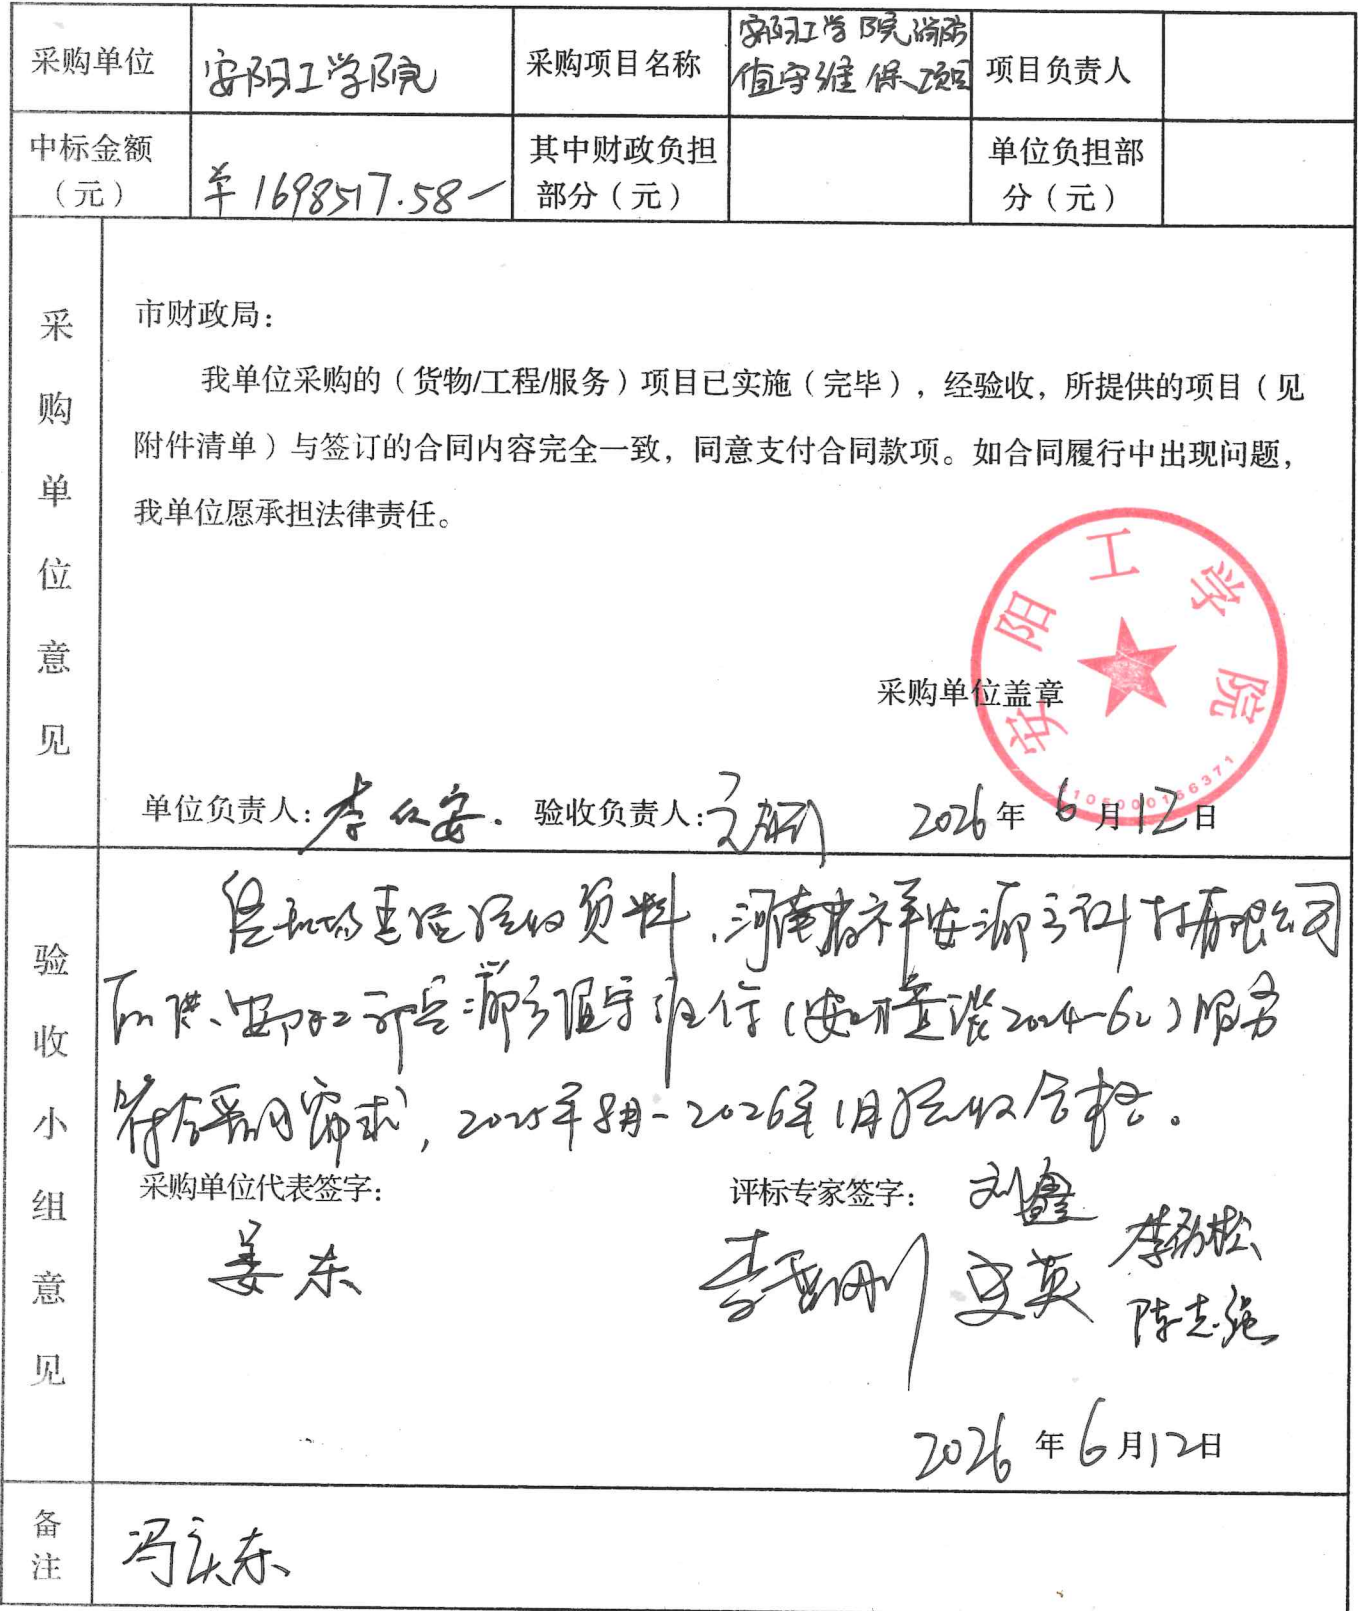 采购单位 安阳工学院 采购项目名称 安阳工学院消防值守维保项目 项目负责人
中标金额（元） ¥1698517.58 其中财政负担部分（元） 单位负担部分（元）
采购单位意见
市财政局：
我单位采购的（货物/工程/服务）项目已实施（完毕），经验收，所提供的项目（见
附件清单）与签订的合同内容完全一致，同意支付合同款项。如合同履行中出现问题，
我单位愿承担法律责任。
安阳工学院
采购单位盖章
单位负责人： 验收负责人： 2026年6月12日
验收小组意见
经现场查验验收资料，河南省祥安消防科技有限公司
所供安阳工学院消防值守维保（2024-62）服务
符合采购需求，2025年8月-2026年1月验收合格。
采购单位代表签字： 评标专家签字： 刘鑫
姜东 史英 李劲松
陈志
2026年6月12日
备注 冯庆东